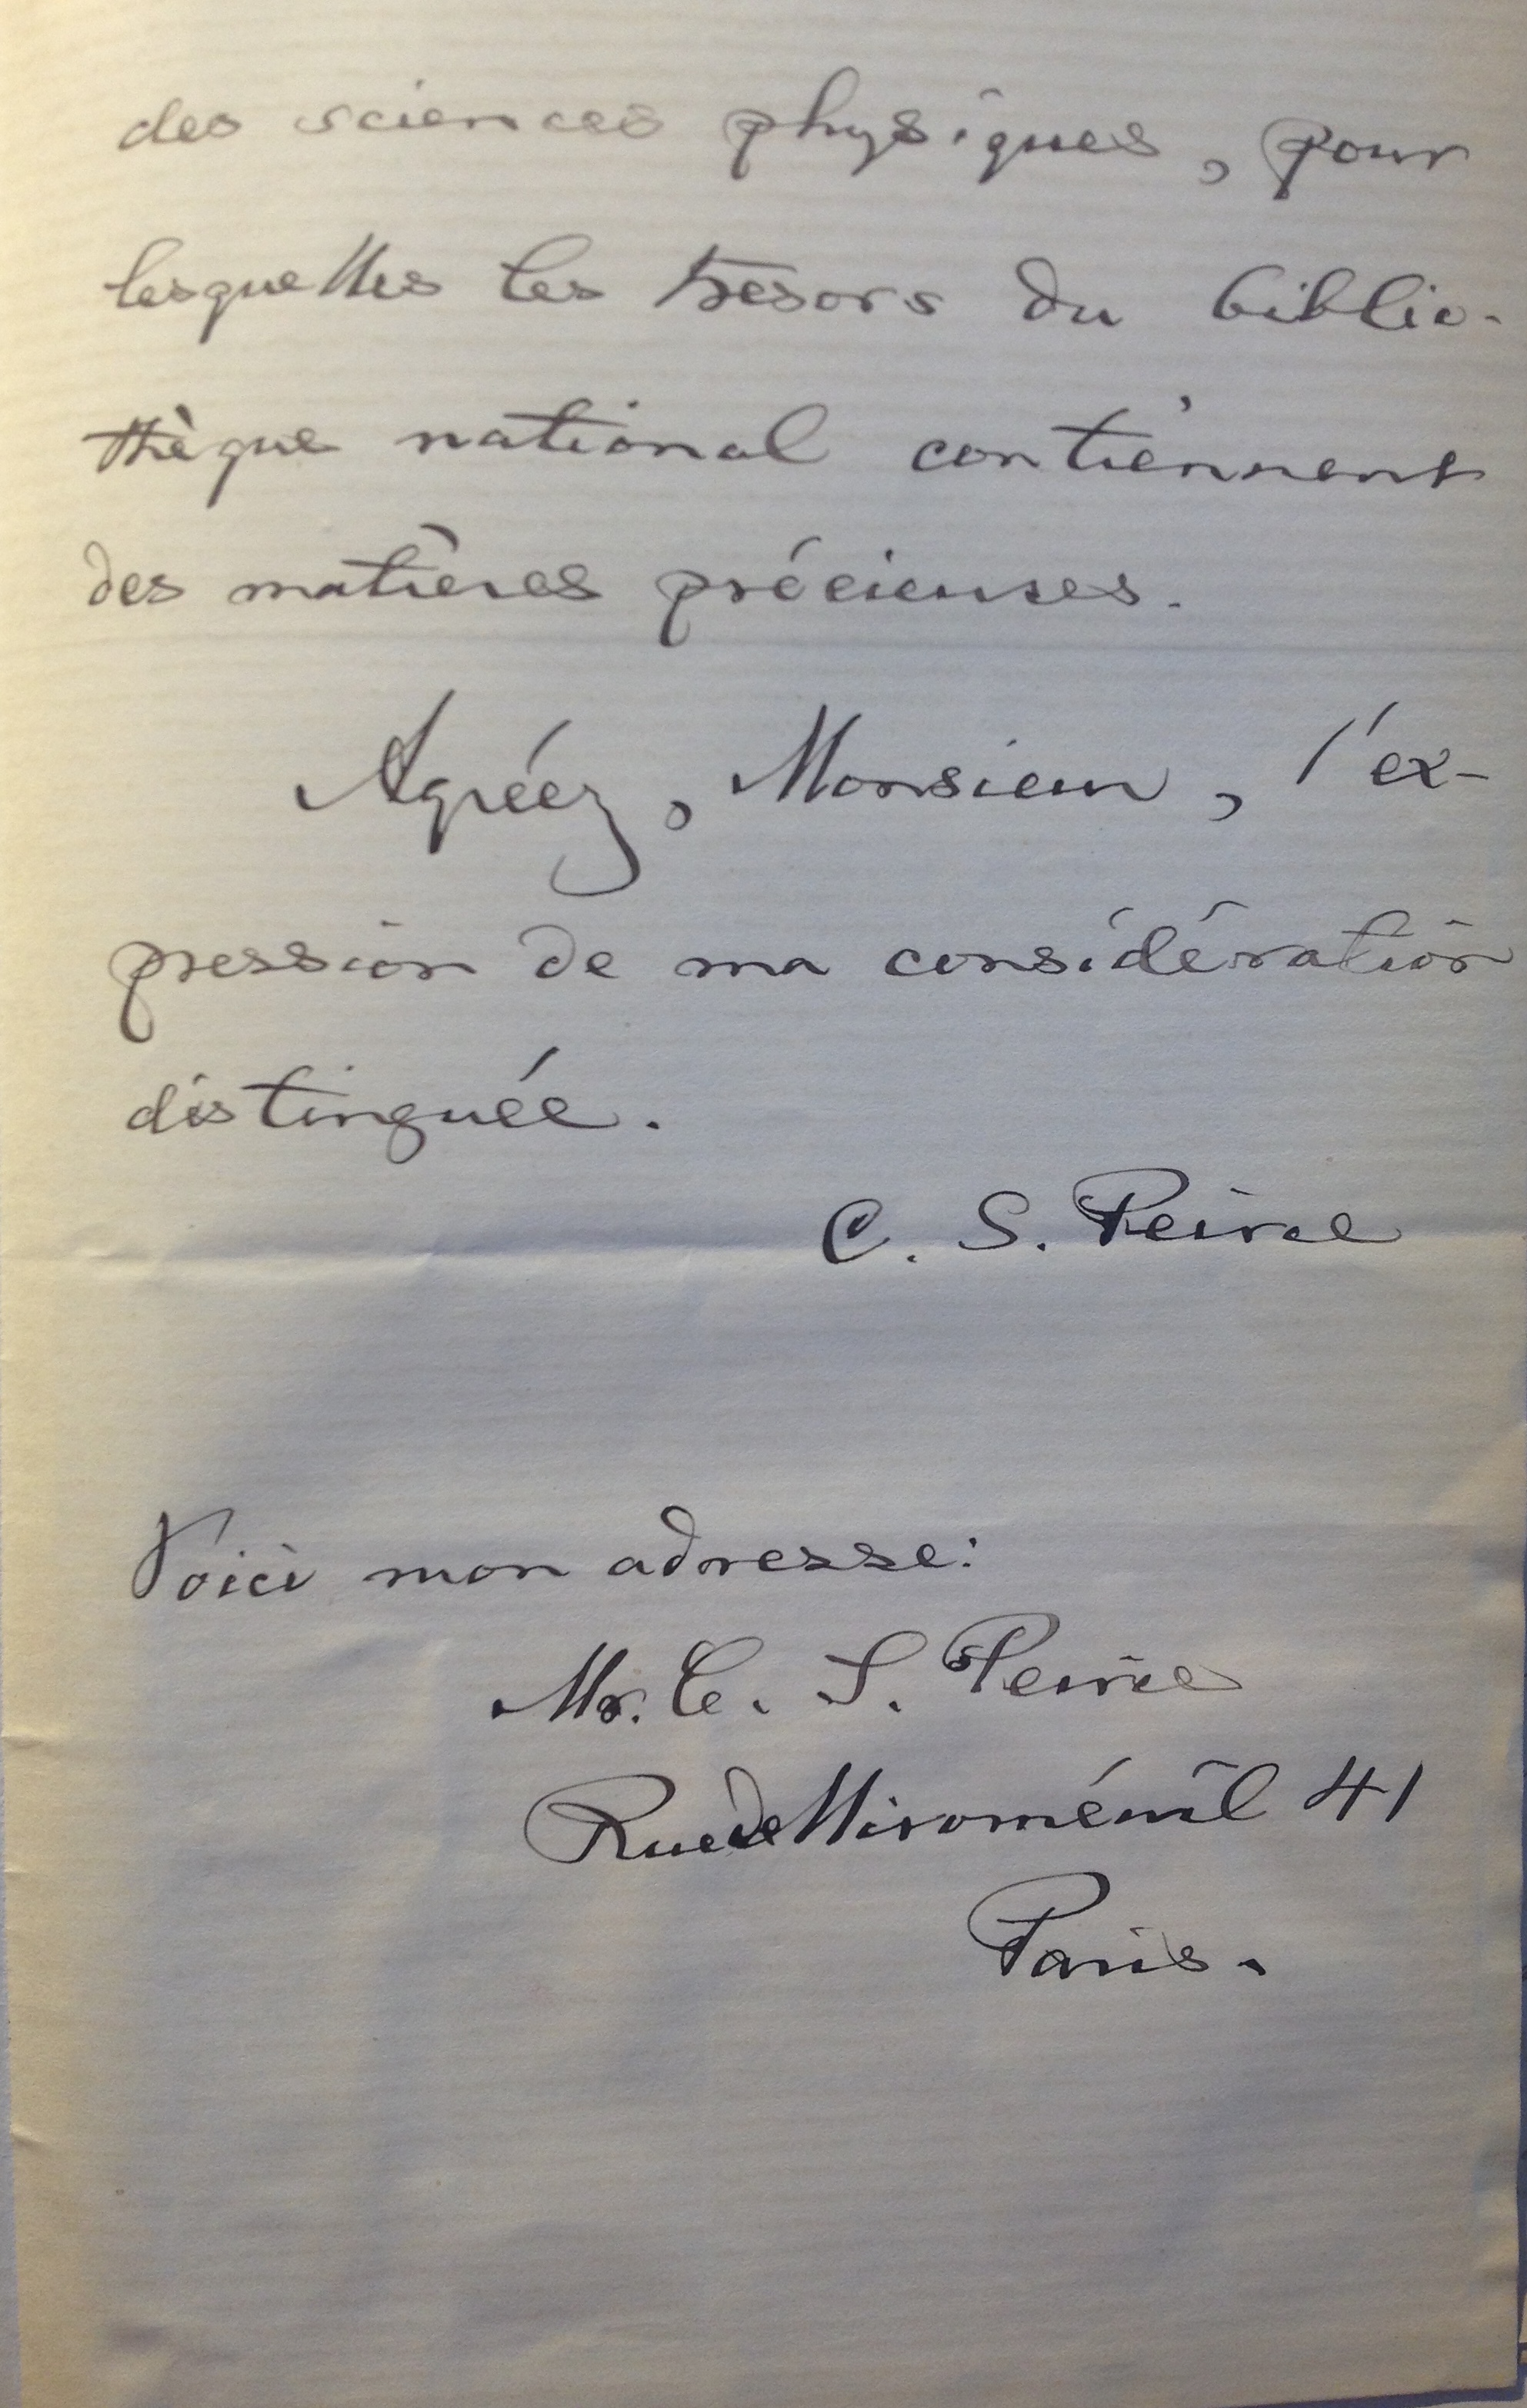 des sciences physiques, pour
lesquelles les trésors du biblio-
thèque national contiennent
des matières précieuses.
Agréez, Monsieur, l'ex-
pression de ma considération
distinguée.
C. S. Peirce
Voici mon adresse:
Mr. C. S. Peirce
Rue de Miroménil 41
Paris.